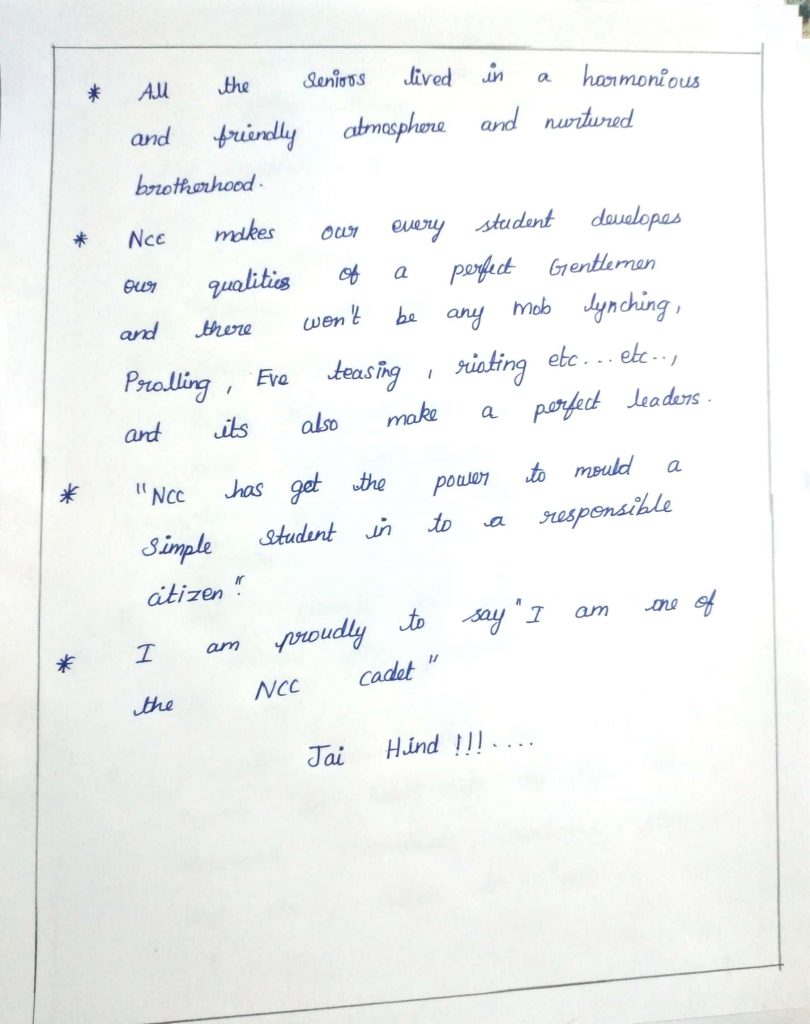 * All the Seniors lived in a harmonious
and friendly atmosphere and nurtured
brotherhood.
* Ncc makes our every student developes
our qualities of a perfect Gentlemen
and there won't be any mob lynching,
Prolling, Eve teasing, rioting etc...etc..,
and its also make a perfect leaders.
* "NCC has get the power to mould a
Simple student in to a responsible
citizen".
* I am proudly to say "I am one of
the NCC cadet"
Jai Hind !!!....